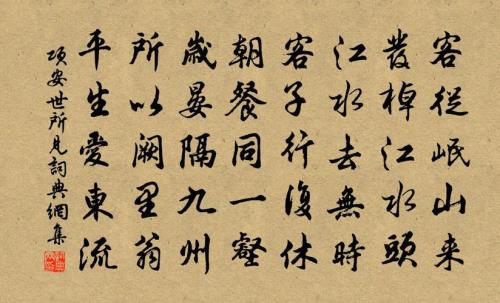 客從岷山来
發棹江水頭
江水去無時
客子行復休
朝餐同一壑
歲晏隔九州
所以阙里翁
平生愛東流
項安世所見詞典網集